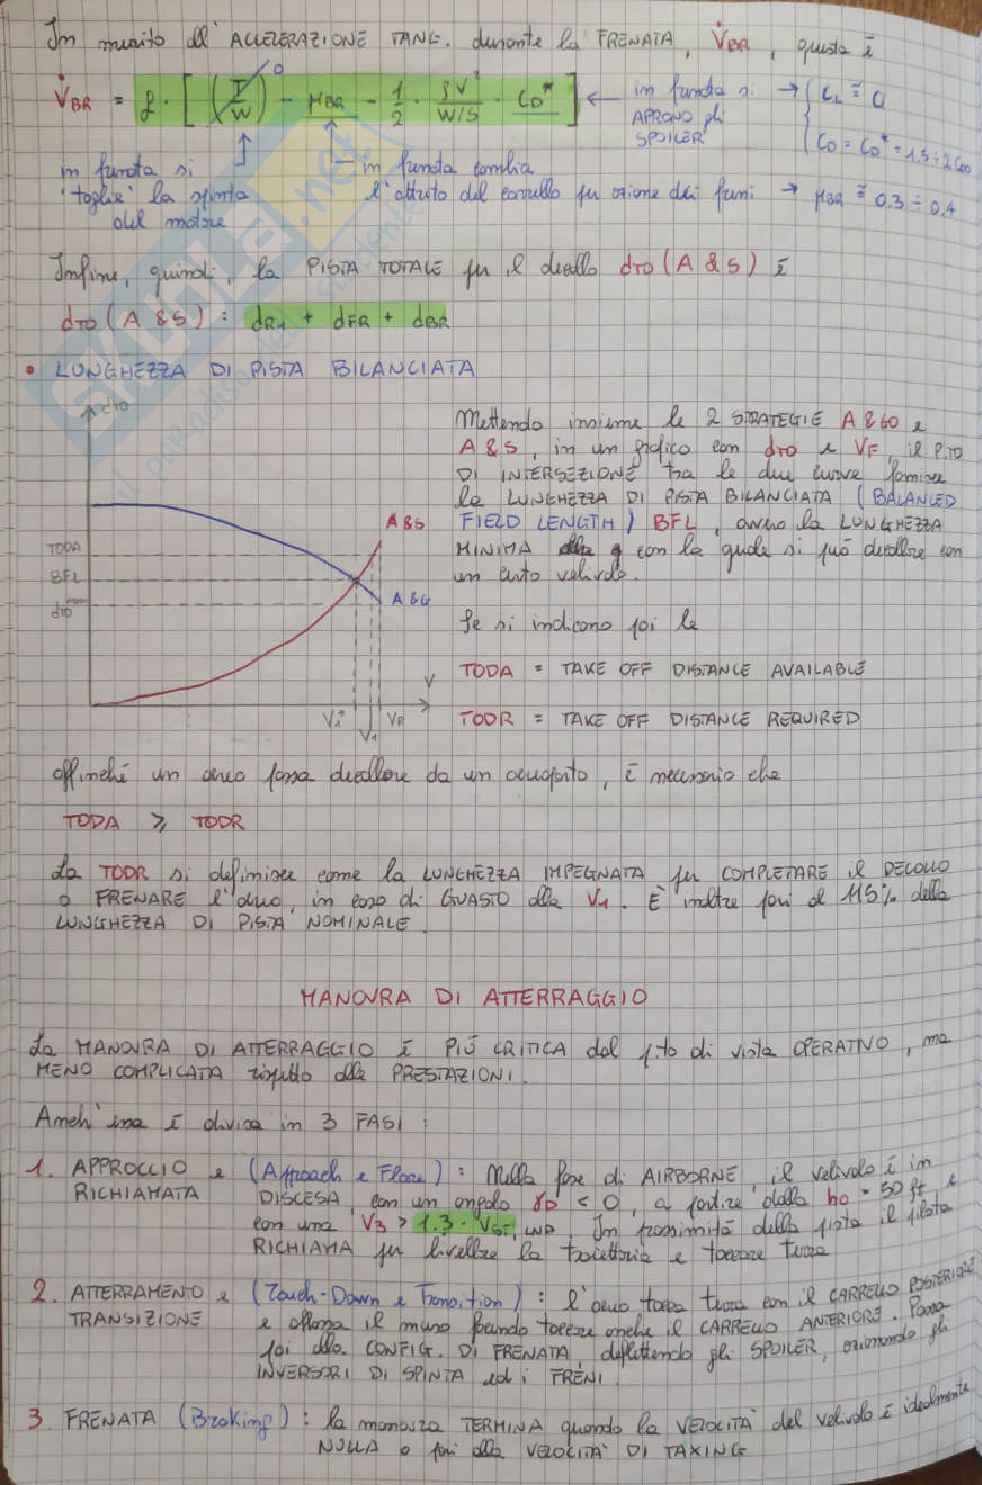 In merito all'ACCELERAZIONE TANG. durante la FRENATA, V̇BR, questa è
V̇BR = g · [ (T/W) 0 - μBR - 1/2 · ρV²/W/S · CD* ] ← in frenata si APRONO gli SPOILER → { CL ≅ 0
CD = CD* = 1.5 ÷ 2 CD0
in frenata si "toglie" la spinta del motore
in frenata cambia l'attrito del carrello per azione dei freni → μBR ≅ 0.3 ÷ 0.4
Infine, quindi, la PISTA TOTALE per il decollo dTO (A & S) è
dTO (A & S) : dR1 + dFR + dBR
• LUNGHEZZA DI PISTA BILANCIATA
dTO
A&S
TODA
BFL
dTO
A&G
V
V1*
V1
VR
Mettendo insieme le 2 STRATEGIE A&GO e
A&S, in un grafico con dTO e VF, il P.TO
DI INTERSEZIONE tra le due curve fornisce
la LUNGHEZZA DI PISTA BILANCIATA (BALANCED
FIELD LENGTH) BFL, ovvero la LUNGHEZZA
MINIMA con la quale si può decollare con
un certo velivolo.
Se si indicano poi le
TODA = TAKE OFF DISTANCE AVAILABLE
TODR = TAKE OFF DISTANCE REQUIRED
affinché un aereo possa decollare da un aeroporto, è necessario che
TODA ⩾ TODR
La TODR si definisce come la LUNGHEZZA IMPEGNATA per COMPLETARE il DECOLLO
o FRENARE l'aereo, in caso di GUASTO alla V1. È inoltre pari al 115% della
LUNGHEZZA DI PISTA NOMINALE.
MANOVRA DI ATTERRAGGIO
La MANOVRA DI ATTERRAGGIO È PIÙ CRITICA dal p.to di vista OPERATIVO, ma
MENO COMPLICATA rispetto alle PRESTAZIONI.
Anch'essa è divisa in 3 FASI:
1. APPROCCIO e RICHIAMATA (Approach e Flare): Nella fase di AIRBORNE, il velivolo è in
DISCESA, con un angolo γD < 0, a partire dalla h0 = 50 ft e
con una V3 > 1.3 · VST, In prossimità della pista il pilota
RICHIAMA per livellare la traiettoria e toccare terra
2. ATTERRAMENTO e TRANSIZIONE (Touch-Down e Transition): l'aereo tocca terra con il CARRELLO POSTERIORE
e abbassa il muso facendo toccare anche il CARRELLO ANTERIORE. Passa
poi alla CONFIG. DI FRENATA, deflettendo gli SPOILER, azionando gli
INVERSORI DI SPINTA ed i FRENI.
3. FRENATA (Braking): la manovra TERMINA quando la VELOCITÀ del velivolo è idealmente
NULLA o pari alla VELOCITÀ DI TAXING